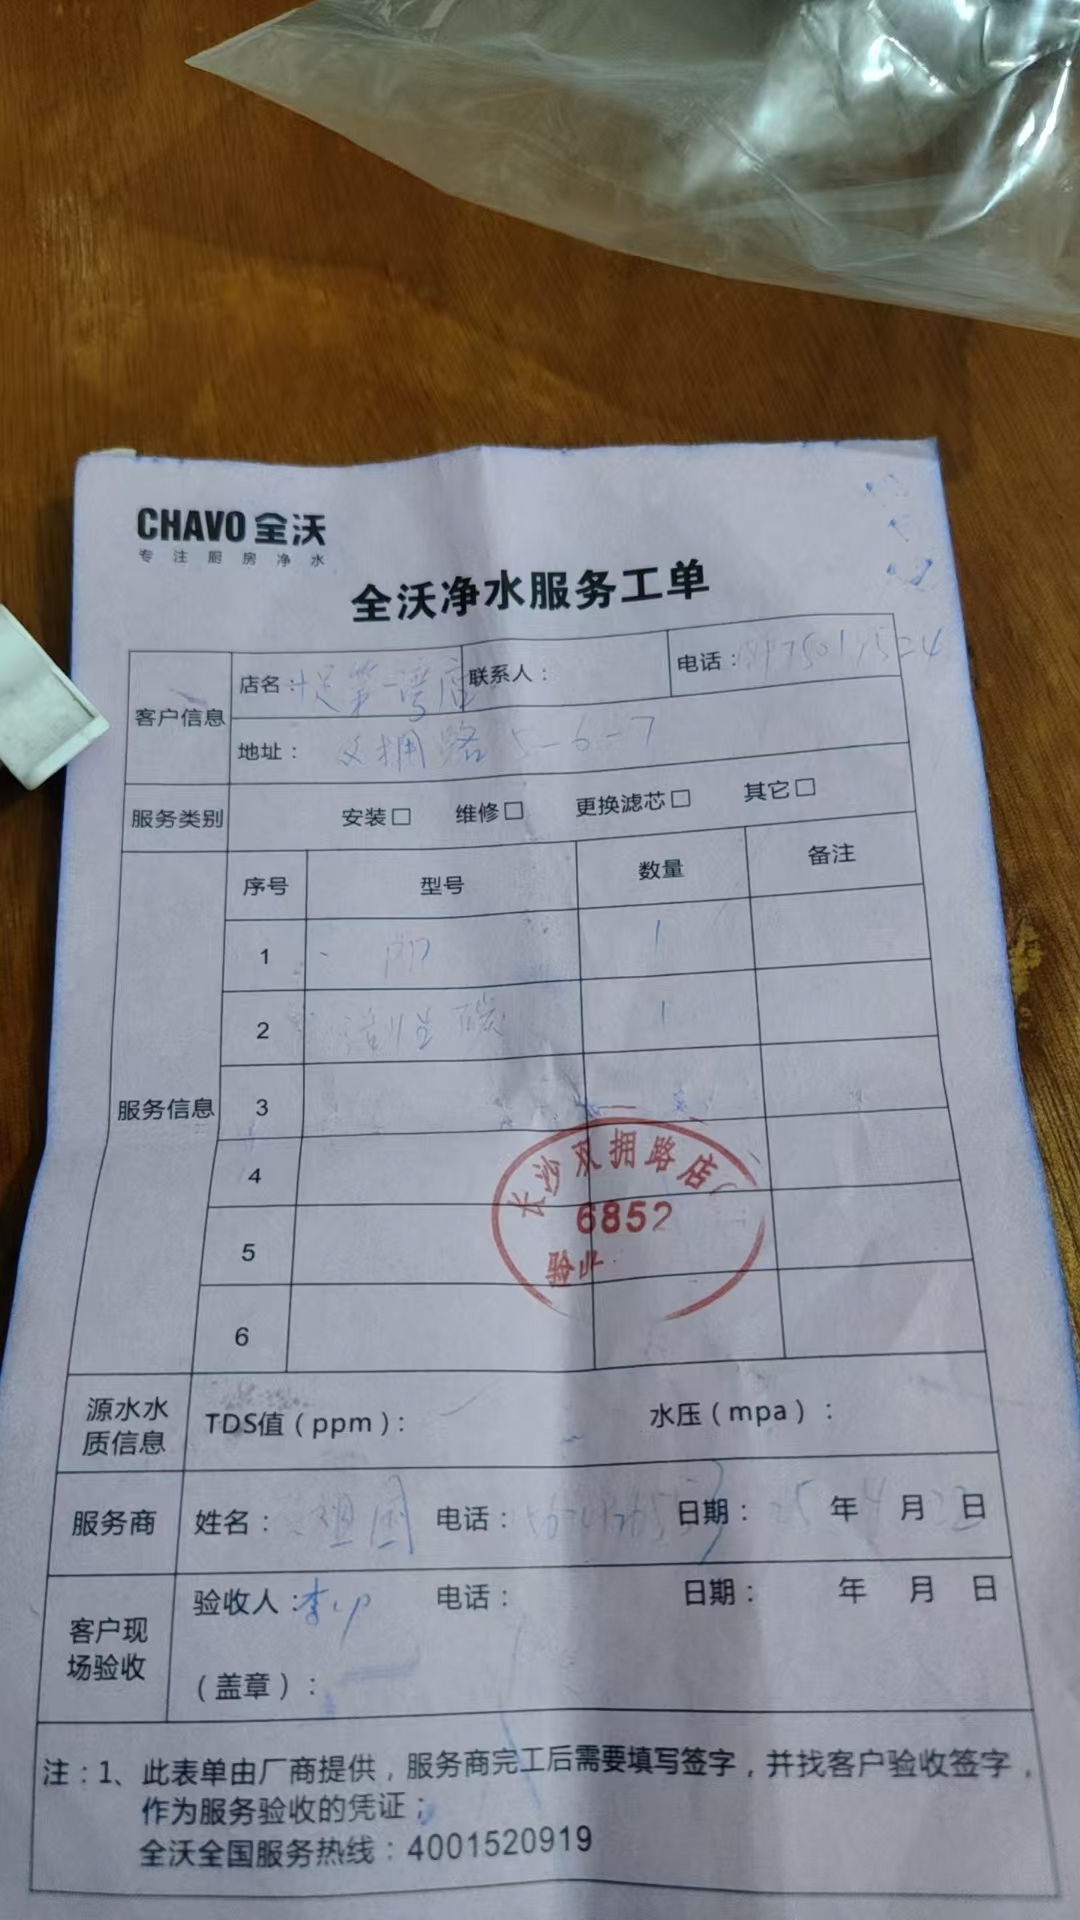 CHAVO 全沃
专注厨房净水
全沃净水服务工单
客户信息
店名：
联系人：
电话：
地址： 双拥路 5-6-7
服务类别
安装□ 维修□ 更换滤芯□ 其它□
服务信息
序号 型号 数量 备注
1 1
2 碳 1
3
4
5
6
长沙双拥路店
6852
源水水质信息
TDS值（ppm）： 水压（mpa）：
服务商
姓名： 祖国 电话： 日期： 25 年 4 月 23 日
客户现场验收
验收人：李 电话： 日期： 年 月 日
（盖章）：
注：1、此表单由厂商提供，服务商完工后需要填写签字，并找客户验收签字，
作为服务验收的凭证；
全沃全国服务热线：4001520919